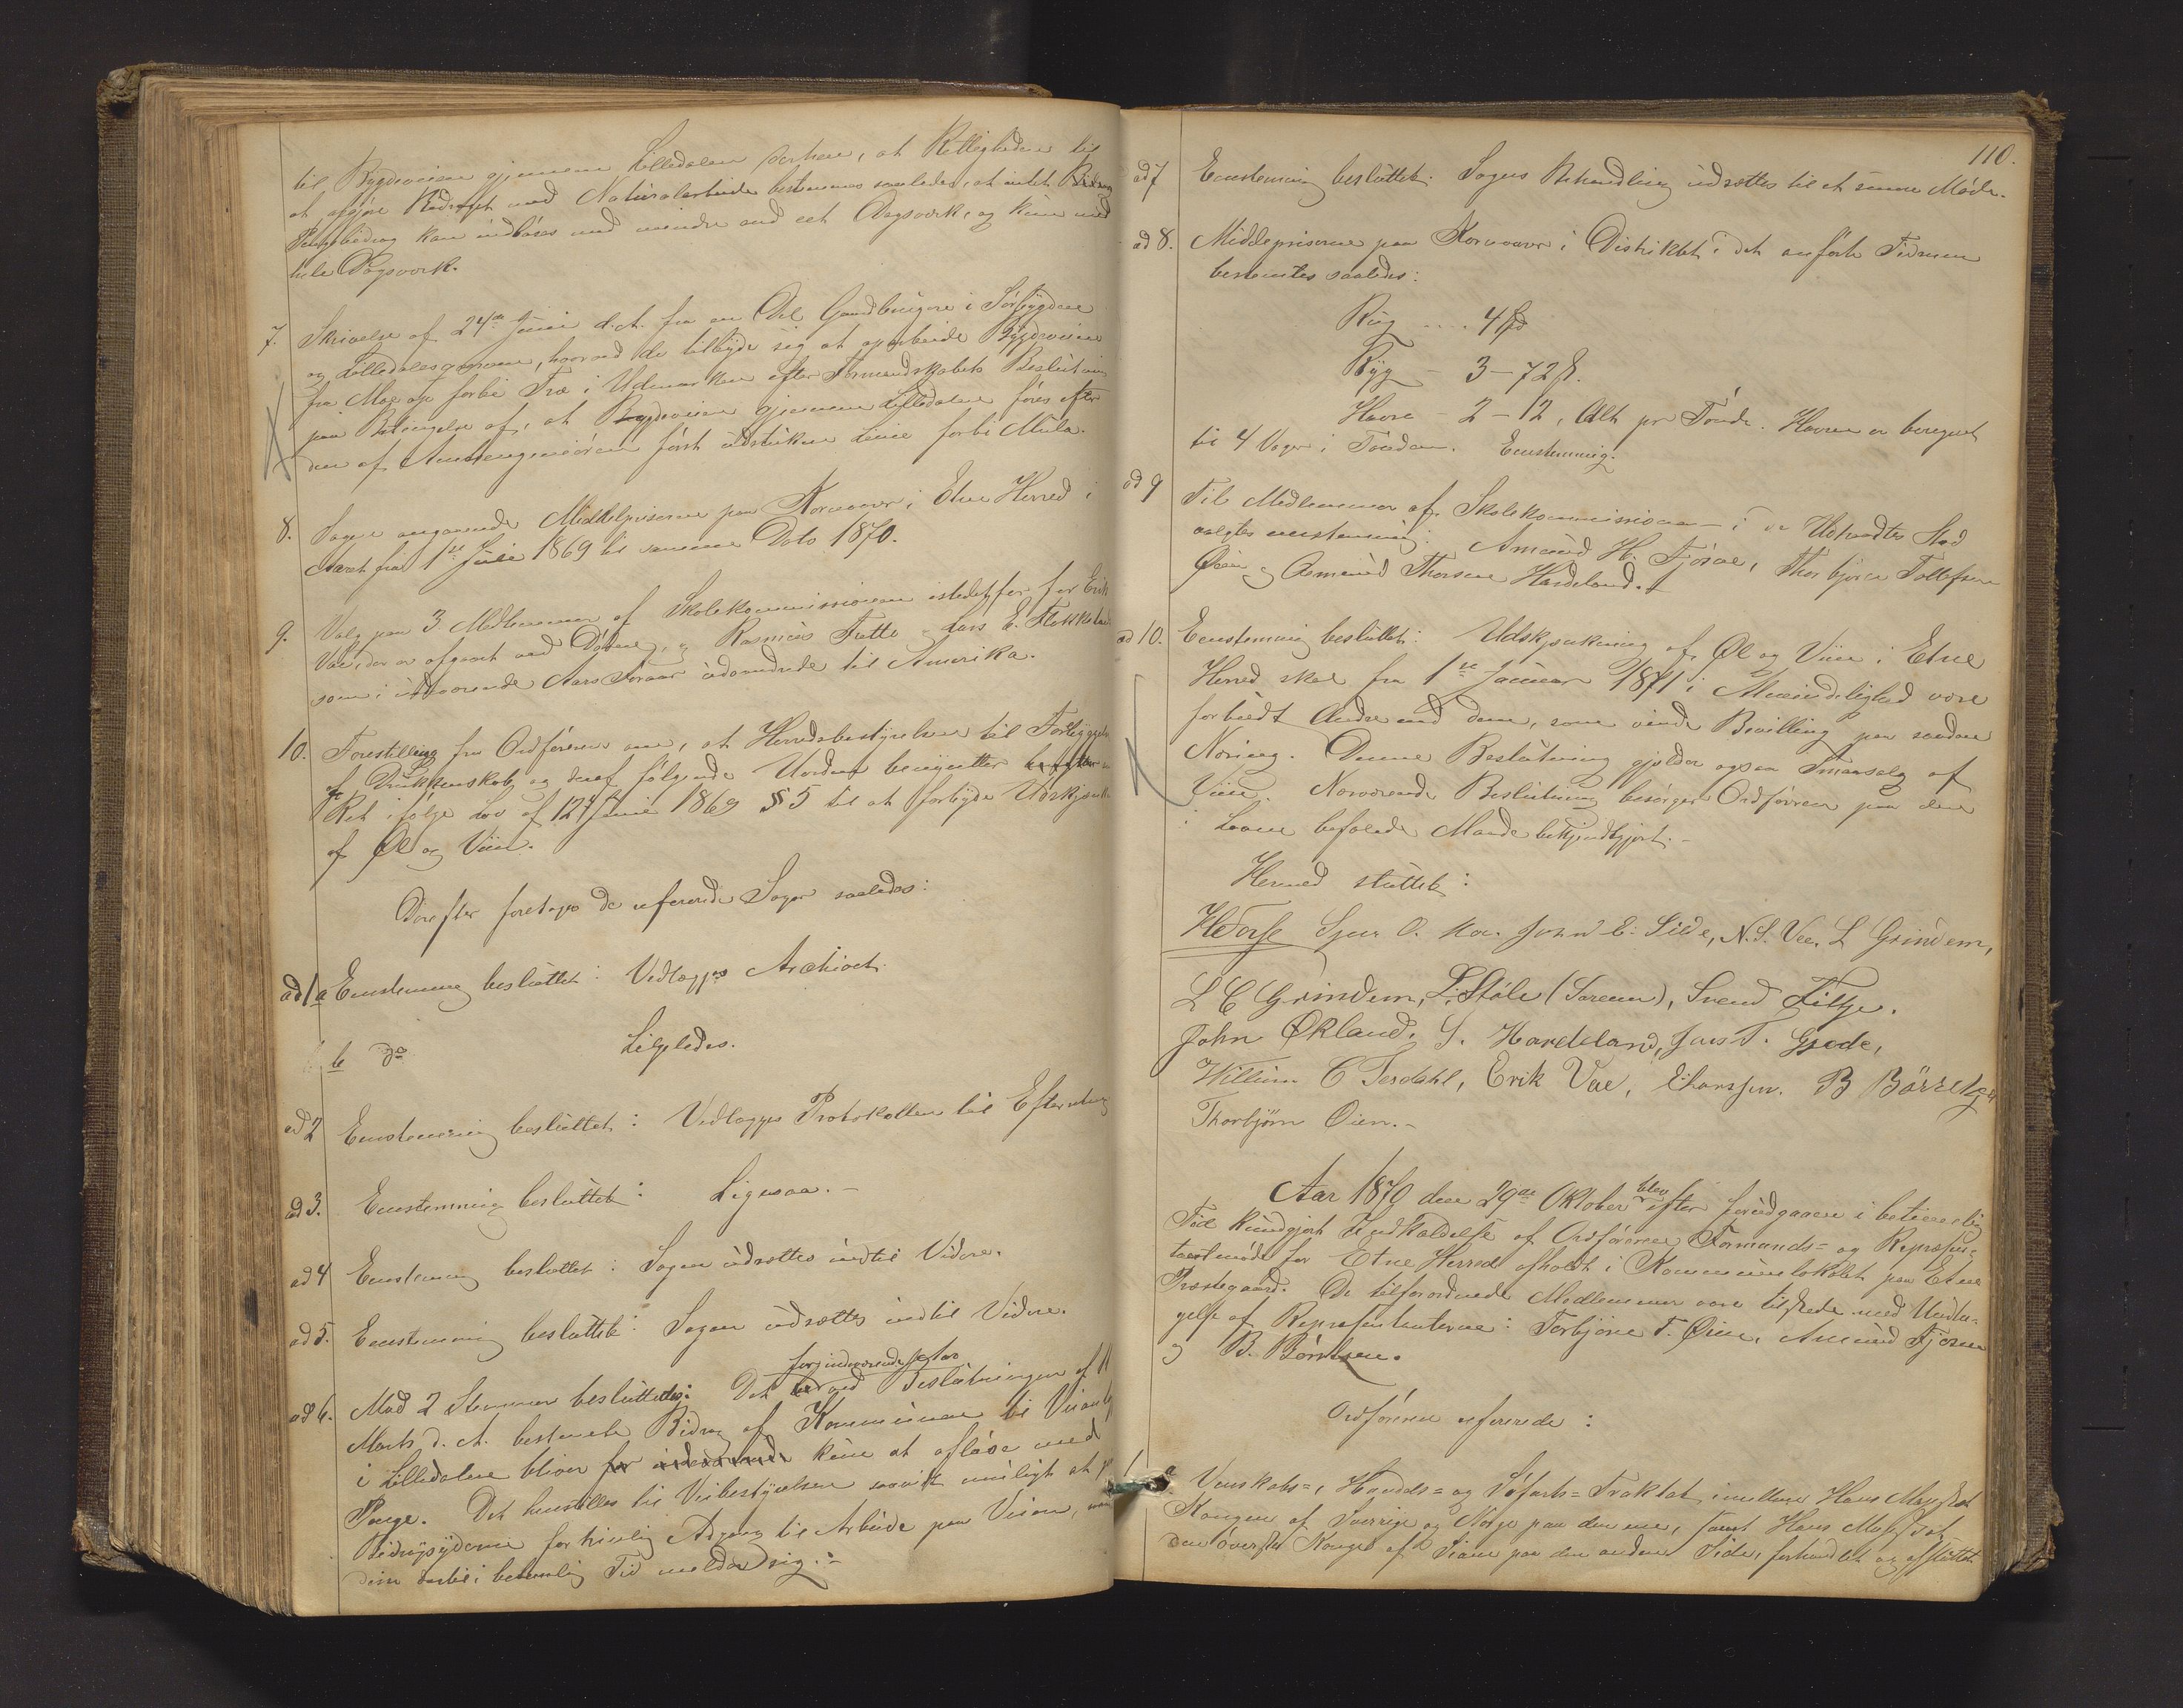 til Bygdeveien gjennem Lilledalen derhen, at Rettigheden til
at afgjøre Bidraget med Naturalarbeide bestemmes saaledes, at intet
Pengebidrag kan indløses med mindre end eet Dagsverk, og kun med
hele Dagsverk.
7. Skrivelse af 24de Juni d.A. fra en Del Gaardbrugere i Sørbygden
og Lilledalesgaarene, hvorved de tilbyde sig at oparbeide Bygdeveien
fra Moe og forbi Træ i Udmarken efter Formandskabets Beslutning
paa Betingelse af, at Bygdeveien gjennem Lilledalen føres efter
den af Amtsingeniøren først udstukne Linie forbi Mula.
8. Sagen angaaende Middelpriserne paa Kornvarer i Etne Herred i
Aaret fra 1ste Juli 1869 til samme Dato 1870.
9. Valg paa 3 Medlemmer af Skolekommissionen istedetfor for Erik
Vae, der er afgaaet ved Døden, og Rasmus Tutto Lars E. Flokketveit
som i indeværende Aars Foraar udvandrede til Amerika.
10. Forestilling fra Ordføreren om, at Herredsbestyrelsen til Forebyggelse
af Drukkenskab og deraf følgende Uorden benytter
Ret ifølge Lov af 12te Juni 1869 § 5 til at forbyde Udskjænkn
af Øl og Viin.
Derefter foretoges de refererede Sager saaledes:
ad 1 a Eenstemmig besluttet: Vedlægges Archivet.
b do Ligeledes.
ad 2 Eenstemmig besluttet: Vedlægges Protokollen til Efterretning
ad 3. Eenstemmig besluttet: Ligesaa.-
ad 4 Eenstemmig besluttet: Sagen udsættes indtil Videre.
ad 5. Eenstemmig besluttet: Sagen udsættes indtil Videre.
for indeværende Aar
ad 6. Mod 2 Stemmer besluttedes: Det ved Beslutningen af
Marts d. A. bestemte Bidrag af Kommunen til Veianlæg
i Lilledalen bliver for indeværende kun at afløse med
Penge. Det henstilles til Veibestyrelsen saavidt muligt at
Bidragsyderne fortrinlig Adgang til Arbeide paa Veien, naar
disse dertil i betimelig Tid melder sig.-
110.
ad 7 Eenstemmig besluttet. Sagens Behandling udsættes til et senere Møde.
ad 8. Middelpriserne paa Kornvarer i Distriktet i det anførte Tidsrum
bestemtes saaledes:
Rug .... 4 Spd
Byg - 3 - 72 ß.
Havre - 2 - 12, Alt pr Tønde. Havren er beregnet
til 4 Voger i Tønden. Eenstemmig.
ad 9 Til Medlemmer af Skolekommissionen i de Udtraadtes Sted
valgtes eenstemmig: Amund H. Fjøsne, Thorbjørn Tollefsen
Øien og Asmund Thorsen Hardeland.
ad 10. Eenstemmig besluttet: Udskjænkning af Øl og Viin i Etne
Herred skal fra 1ste Januar 1871 i Almindelighed være
forbudt Andre end dem, som vinde Bevilling paa saadan
Næring. Denne Beslutning gjælder ogsaa Smaasalg af
Viin. Nærværende Beslutning besørger Ordføreren paa den
i Loven befalede Maade bekjendtgjort.-
Hermed sluttet:
Sjur O. Moe. John E. Silde, N.S. Vee. L Grindem,
L E Grindem, L. Støle (Sørenen), Svend Fitje.
John Økland. S. Hardeland, Jens T. Gjerde,
Willum C Tesdahl, Erik Vae, B Börretzen
Thorbjørn Øien.-
Aar 1870 den 29de Oktober blev efter forudgaaen i betimelig
Tid kundgjort Indkaldelse af Ordføreren Formands- og Repræsen-
tantmøde for Etne Herred afholdt i Kommunelokalet paa Etne
Præstegaard. De tilforordnede Medlemmer vare tilstede med Undta-
gelse af Repræsentanterne: Torbjørn T. Øien, Amund Fjøsne
og B. Børretsen.
Ordføreren refererede:
1 a Venskabs-, Handels- og Søfarts-Traktat imellem Hans Majestæt
Kongen af Sverrige og Norge paa den ene, samt Hans Majestæt
den øverste Konge af Siam paa den anden Side, forhandlet og afsluttet